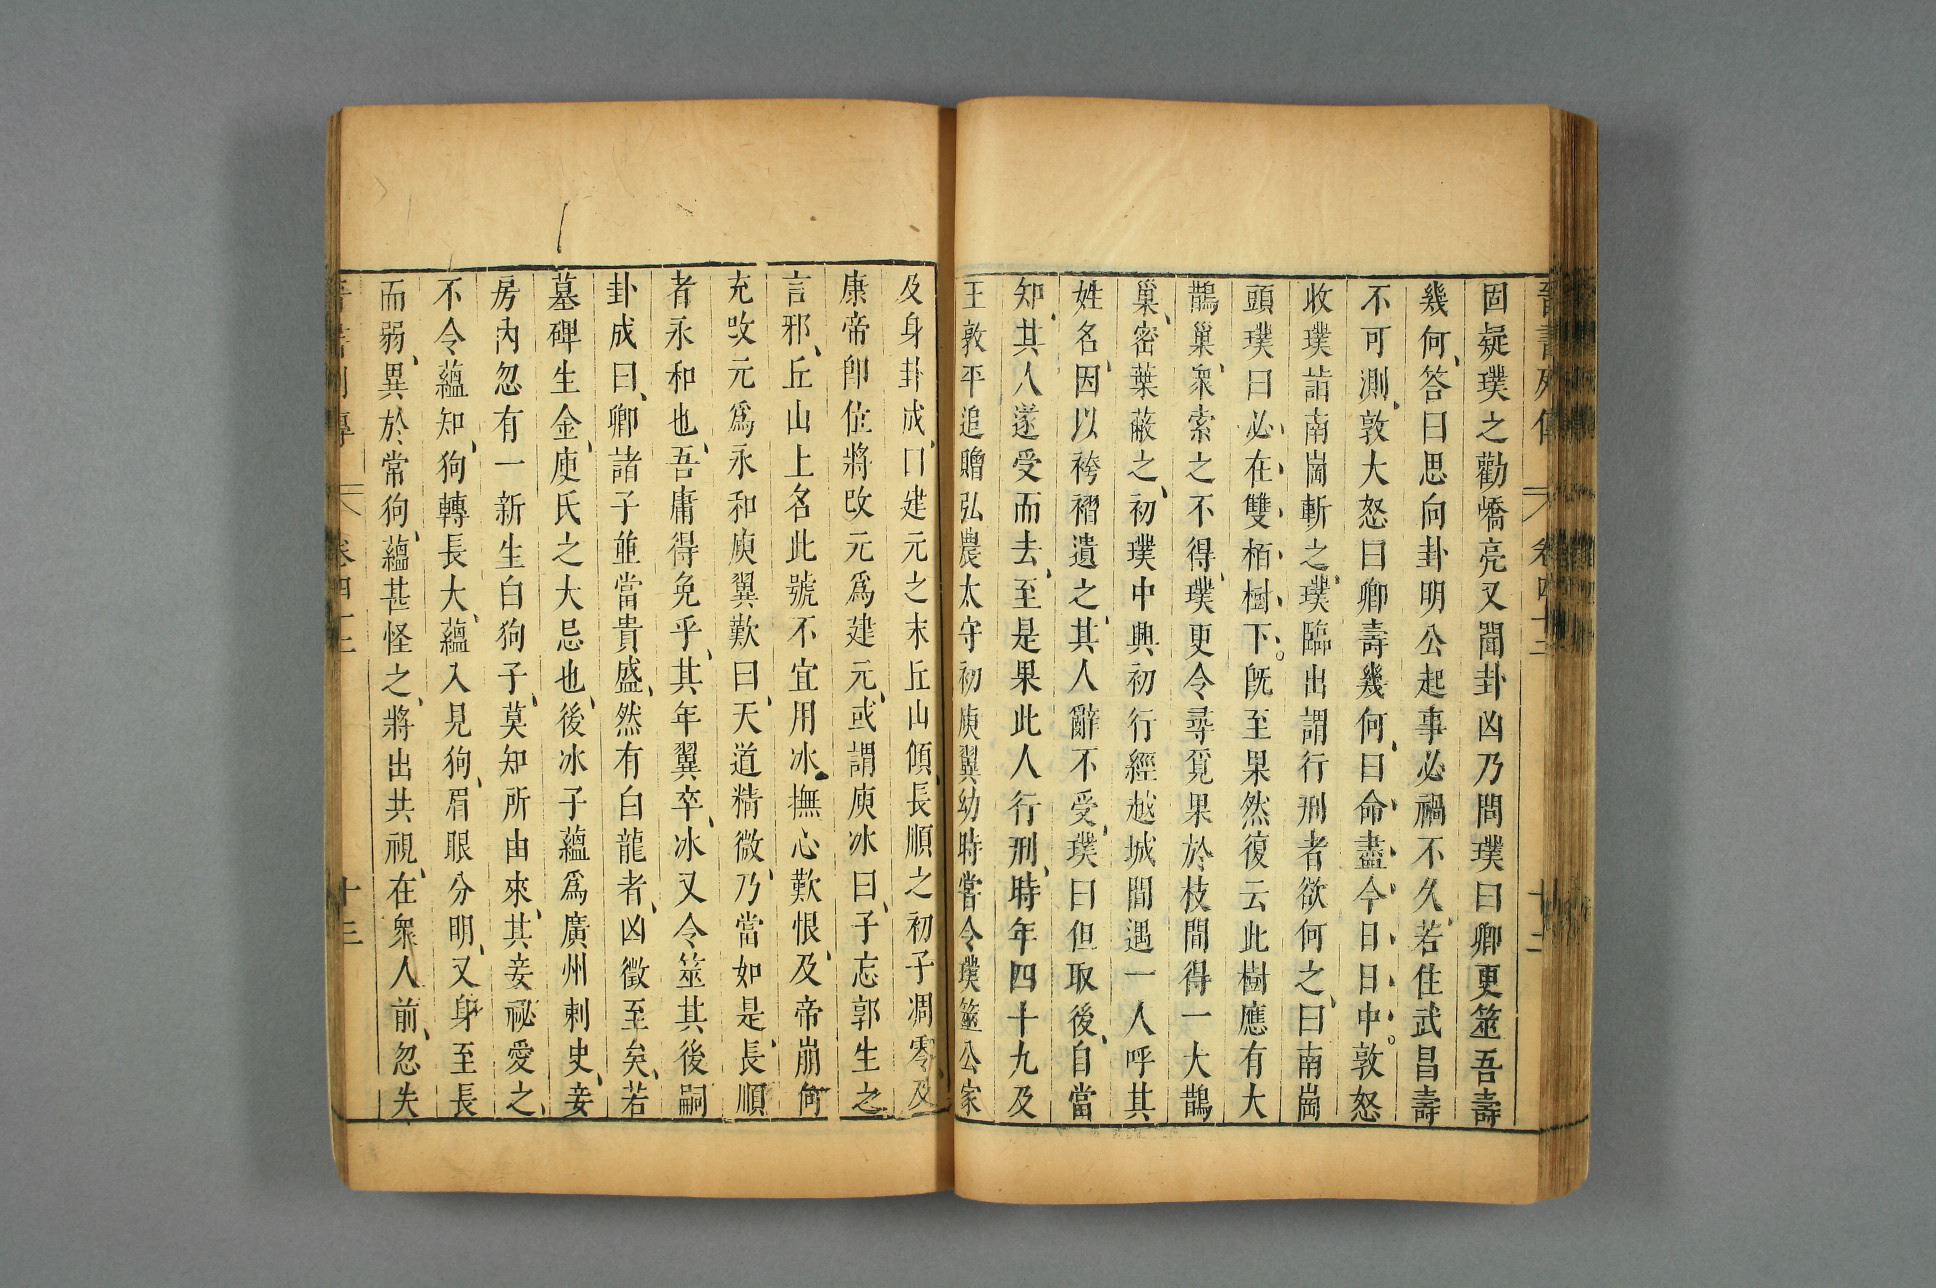 晉書列傳 卷四十二 十二
固疑璞之勸嶠亮又聞卦凶乃問璞曰卿更筮吾壽
幾何、答曰思向卦明公起事必禍不久、若住武昌壽
不可測、敦大怒曰卿壽幾何、曰命盡今日日中。敦怒
收璞詣南崗斬之、璞臨出謂行刑者欲何之、曰南崗
頭璞曰必在雙栢樹下。既至果然復云此樹應有大
鵲巢、衆索之不得、璞更令尋覔果於枝間得一大鵲
巢、密葉蔽之、初璞中興初行經越城間遇一人呼其
姓名、因以袴褶遺之、其人辭不受、璞曰但取後、自當
知、其人遂受而去、至是果此人行刑、時年四十九及
王敦平追贈弘農太守初庾翼幼時嘗令璞筮公家
及身卦成、曰建元之末丘山傾、長順之初子凋零、及
康帝卽位將改元爲建元、或謂庾冰曰、子忘郭生之
言邪、丘山上名此號不宜用冰撫心歎恨、及帝崩何
充改元爲永和庾翼歎曰、天道精微、乃當如是、長順
者永和也、吾庸得免乎、其年翼卒、冰又令筮其後嗣
卦成曰、卿諸子並當貴盛、然有白龍者、凶徵至矣、若
墓碑生金、庾氏之大忌也、後冰子蘊爲廣州刺史、妾
房內忽有一新生白狗子、莫知所由來、其妾祕愛之、
不令蘊知、狗轉長大、蘊入見狗、眉眼分明、又身至長
而弱、異於常狗、蘊甚怪之、將出共視、在衆人前、忽失
晉書列傳 卷四十二 十三